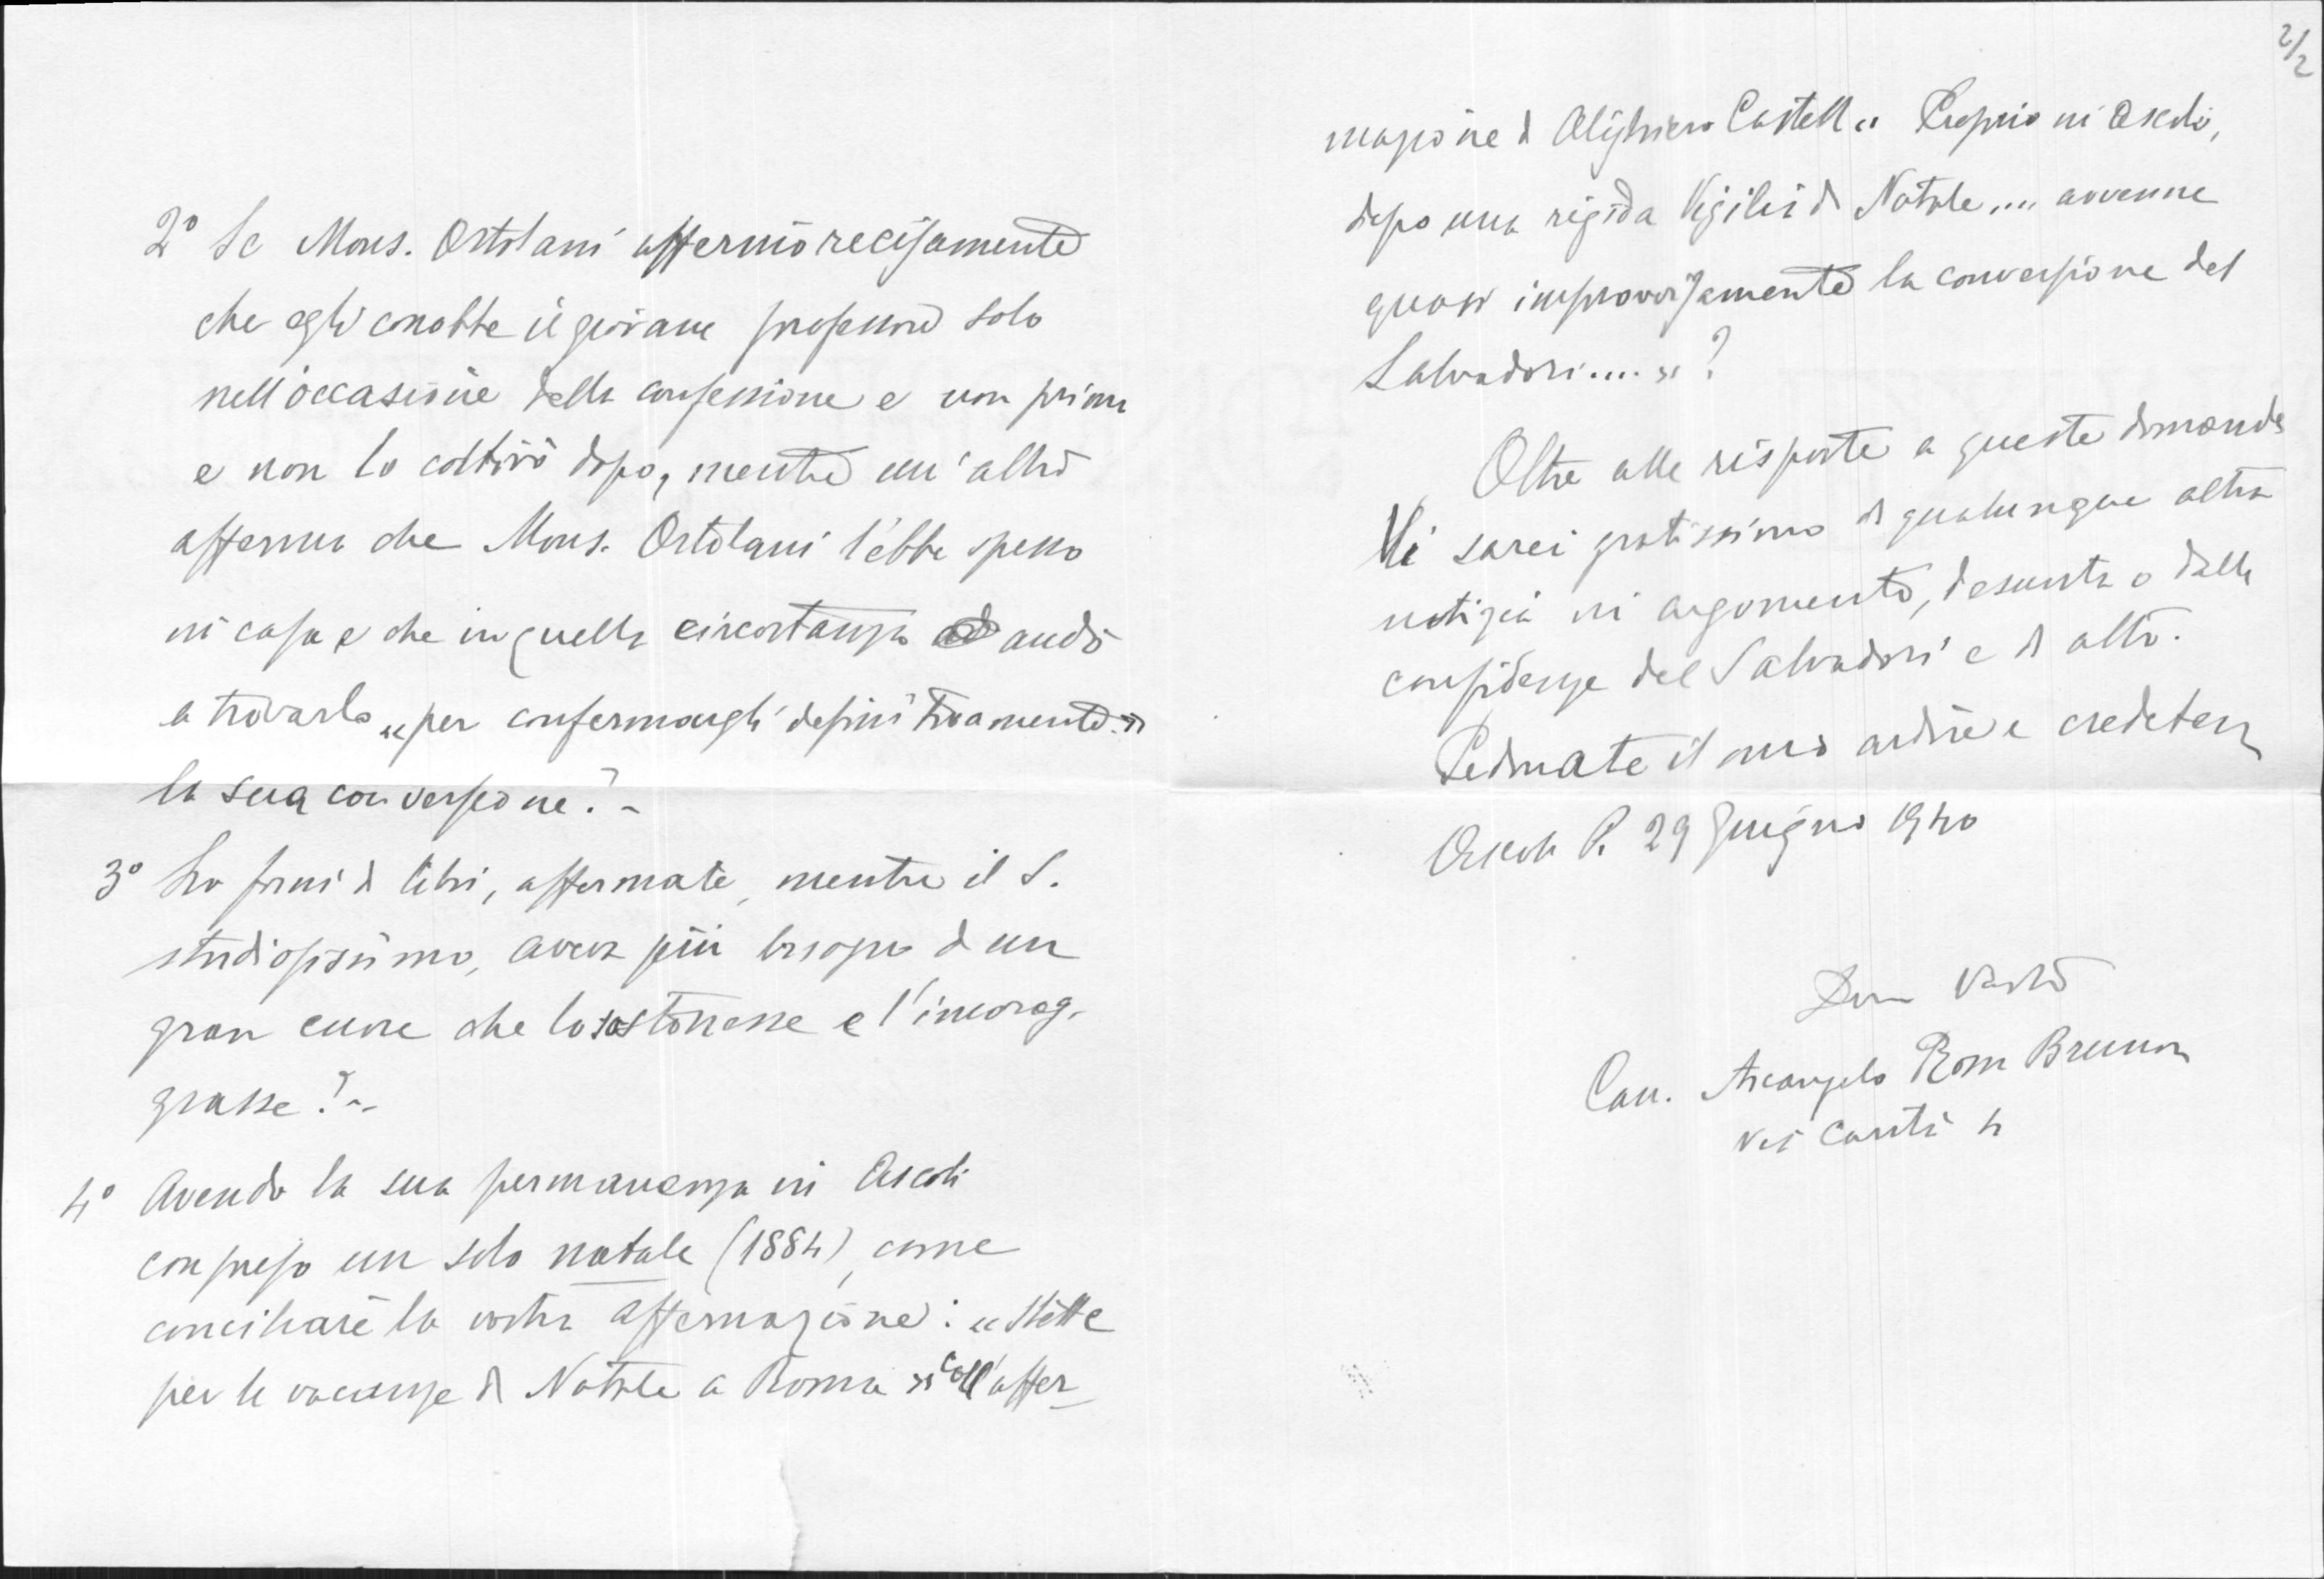 2/2
2º Se Mons. Ortolani affermò recisamente
che egli conobbe il giovane professore solo
nell'occasione della confessione e non prima
e non lo coltivò dopo, mentre un'altro
afferma che Mons. Ortolani l'ebbe spesso
in casa e che in quella circostanza andò
a trovarlo „per confermargli definitivamente"
la sua conversione? -
3º Lo fornì di libri, affermate, mentre il S.
studiosissimo, aveva più bisogno d'un
gran cuore che lo sostenesse e l'incorag-
giasse? -
4º Avendo la sua permanenza in Ascoli
compreso un solo natale (1884), come
conciliare la vostra affermazione: "Stette
per le vacanze di Natale a Roma" coll'affer-
mazione di Alighiero Castelli "Proprio in Ascoli,
dopo una rigida Vigilia di Natale.... avvenne
quasi improvvisamente la conversione del
Salvadori...."?
Oltre alle risposte a queste domande
Vi sarei gratissimo di qualunque altra
notizia in argomento, desunta o dalle
confidenze del Salvadori e di altri.
Perdonate il mio ardire e credetemi
Ascoli P. 29 Giugno 1940
Dev. Vostro
Can. Arcangelo Rom Brunori
Via Cantù 4